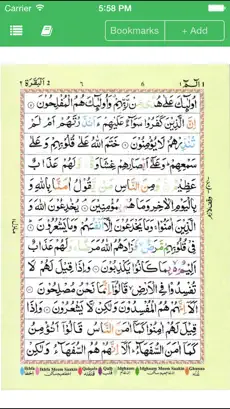 Carrier 5:58 PM
Bookmarks + Add
البقرة ٢ ٦ الٓمّٓ ١
اُولٰٓئِكَ عَلٰى هُدًى مِّنْ رَّبِّهِمْ وَاُولٰٓئِكَ هُمُ الْمُفْلِحُوْنَ
اِنَّ الَّذِيْنَ كَفَرُوْا سَوَآءٌ عَلَيْهِمْ ءَاَنْذَرْتَهُمْ اَمْ لَمْ
تُنْذِرْهُمْ لَا يُؤْمِنُوْنَ خَتَمَ اللّٰهُ عَلٰى قُلُوْبِهِمْ وَعَلٰى
سَمْعِهِمْ وَعَلٰٓى اَبْصَارِهِمْ غِشَاوَةٌ وَّلَهُمْ عَذَابٌ
عَظِيْمٌ وَمِنَ النَّاسِ مَنْ يَّقُوْلُ اٰمَنَّا بِاللّٰهِ وَ
بِالْيَوْمِ الْاٰخِرِ وَمَا هُمْ بِمُؤْمِنِيْنَ يُخٰدِعُوْنَ اللّٰهَ وَ
الَّذِيْنَ اٰمَنُوْا وَمَا يَخْدَعُوْنَ اِلَّآ اَنْفُسَهُمْ وَمَا يَشْعُرُوْنَ
فِيْ قُلُوْبِهِمْ مَّرَضٌ فَزَادَهُمُ اللّٰهُ مَرَضًا وَلَهُمْ عَذَابٌ
اَلِيْمٌ بِمَا كَانُوْا يَكْذِبُوْنَ وَاِذَا قِيْلَ لَهُمْ لَا
تُفْسِدُوْا فِى الْاَرْضِ قَالُوْٓا اِنَّمَا نَحْنُ مُصْلِحُوْنَ
اَلَآ اِنَّهُمْ هُمُ الْمُفْسِدُوْنَ وَلٰكِنْ لَّا يَشْعُرُوْنَ وَاِذَا
قِيْلَ لَهُمْ اٰمِنُوْا كَمَآ اٰمَنَ النَّاسُ قَالُوْٓا اَنُؤْمِنُ
كَمَآ اٰمَنَ السُّفَهَآءُ اَلَآ اِنَّهُمْ هُمُ السُّفَهَآءُ وَلٰكِنْ
Ikhfa Ikhfa Meem Saakin Qalqala Qalb Idghaam Idghaam Meem Saakin Ghunna